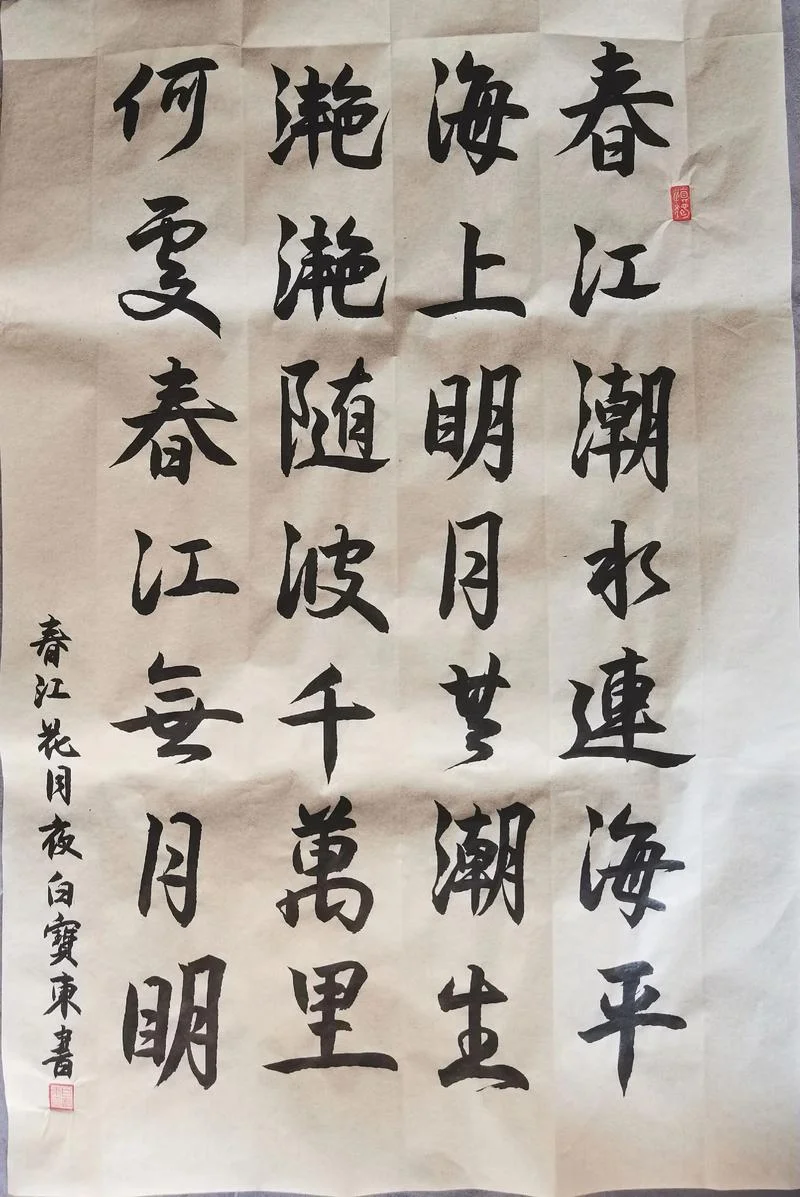 春江潮水連海平
海上明月共潮生
灔灔随波千萬里
何處春江無月明
春江花月夜白寶東書